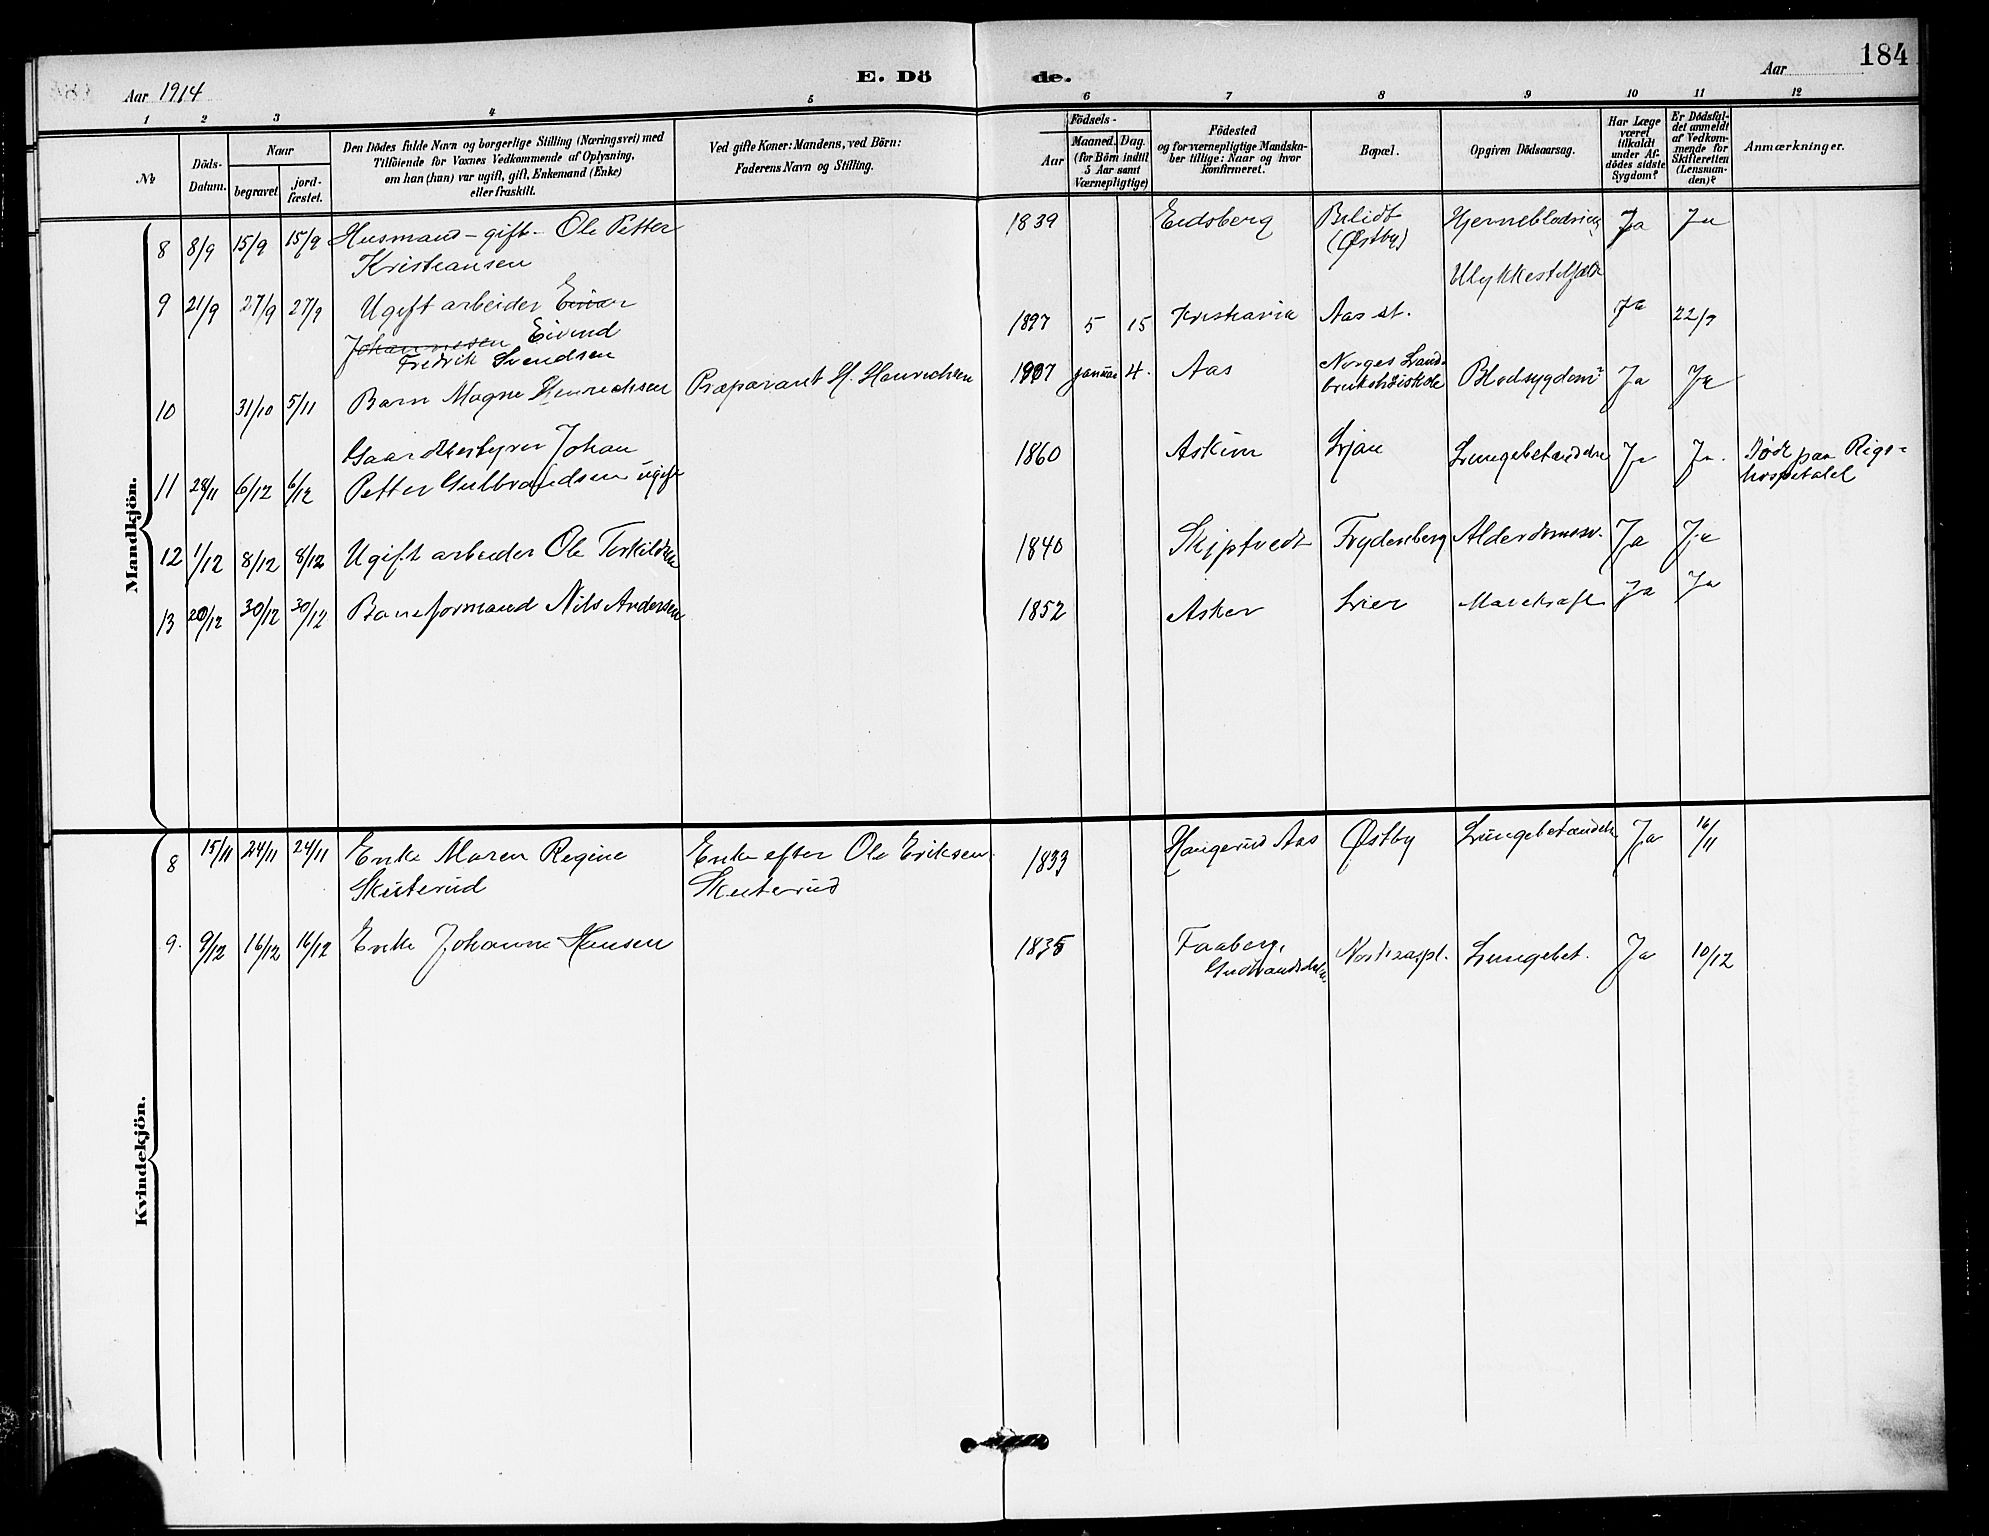 184
Aar 1914
E. Dö
de.
Aar
1 2 3 4 5 6 7 8 9 10 11 12
No
Döds-
Datum.
Naar
begravet
jord-
fæstet.
Den Dödes fulde Navn og borgerlige Stilling (Næringsvei) med
Tilföiende for Voxnes Vedkommende af Oplysning,
om han (hun) var ugift, gift, Enkemand (Enke)
eller fraskilt.
Ved gifte Koner: Mandens, ved Börn:
Faderens Navn og Stilling.
Födsels-
Aar
Maaned. Dag.
(for Börn indtil
5 Aar samt
Værnepligtige)
Födested
og for værnepligtige Mandska-
ber tillige: Naar og hvor
konfirmeret.
Bopæl.
Opgiven Dödsaarsag.
Har Læge
været
tilkaldt
under Af-
dödes sidste
Sygdom?
Er Dödsfal-
det anmeldt
af Vedkom-
mende for
Skifteretten
(Lensman-
den)?
Anmærkninger.
Mandkjön.
8 8/9 15/9 15/9 Husmand - gift - Ole Petter 1839 Eidsberg Hjerneblødning Ja Ja
Kristiansen (Østby)
9 21/9 27/9 27/9 Ugift arbeider Einar 1897 5 15 Kristiania Aas st. Ulykkestilfælde Ja 22/9
Johannesen Eivind
Fredrik Svendsen
10 31/10 5/11 Barn Magne Henrichsen Præparant H. Henrichsen 1907 januar 4. Aas Norges Land- Blodsygdom Ja Ja
brukshøiskole
11 28/11 6/12 6/12 Gaardbestyrer Johan 1860 Askim Ljan Lungebetændelse Ja Ja. Døde paa Rigs-
Petter Gulbrandsen ugift hospitalet
12 1/12 8/12 8/12 Ugift arbeider Ole Terkildsen 1840 Skiptvedt Frydenberg Alderdomssv. Ja Ja
13 20/12 30/12 30/12 Baneformand Nils Andersen 1852 Asker Lier Mavekræft Ja Ja
Kvindekjön.
8 15/11 24/11 24/11 Enke Maren Regine Enke efter Ole Eriksen 1833 Haugerud Aas Østby Lungebetændelse Ja 16/11
Skuterud Skuterud
9. 9/12 16/12 16/12 Enke Johanne Hansen 1835 Faaberg, Lungebet. Ja 10/12
Gudbrandsdalen